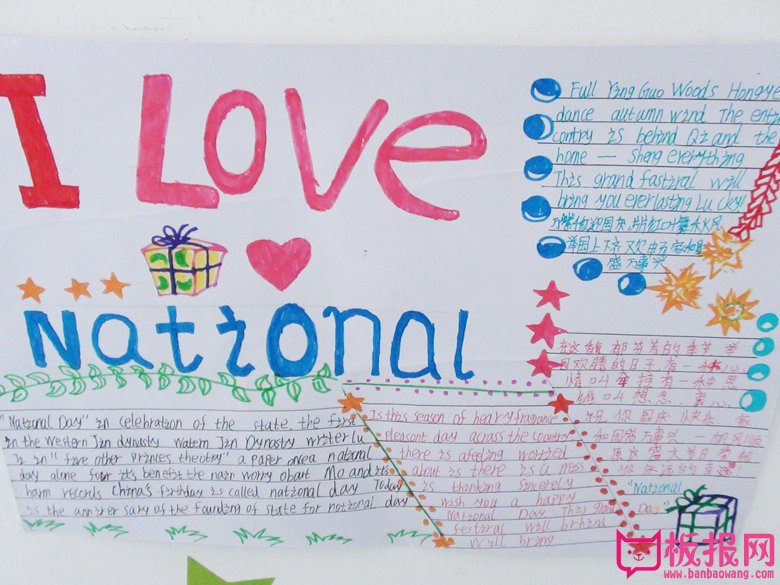 I Love
National
Full Ying Guo Woods Hongye
dance autumn wind The enti
contry is behind Qi and the
home — sheng everything
This grand fastiral will
bring you everlasting Lucky!
盛万事兴
"National Day" in celebration of the state, the first
in the Western Jin dynasty watern Jin Dynasty writer lu
Ji in "five other princes theotry" a paper onea national
day alone for it's benefit the nain worry obout Mo and its
harm records China's firthday is called national day Today
is the anniter sary of the founding of state for national day
Is this season of heary fragrance
pleasant day across the country
there is afeeling worried
about is there is a miss
is thinking Sincetely
wish you a happy
National Day This gland
festiral will brhind
Will brind
的季节 举
国欢腾的日子 有一种
情叫 有一种思
叫想念
祝你国庆快乐 家
和国盛万事兴 一帆风顺
"National
Day"
板报网
www.banbaowang.com